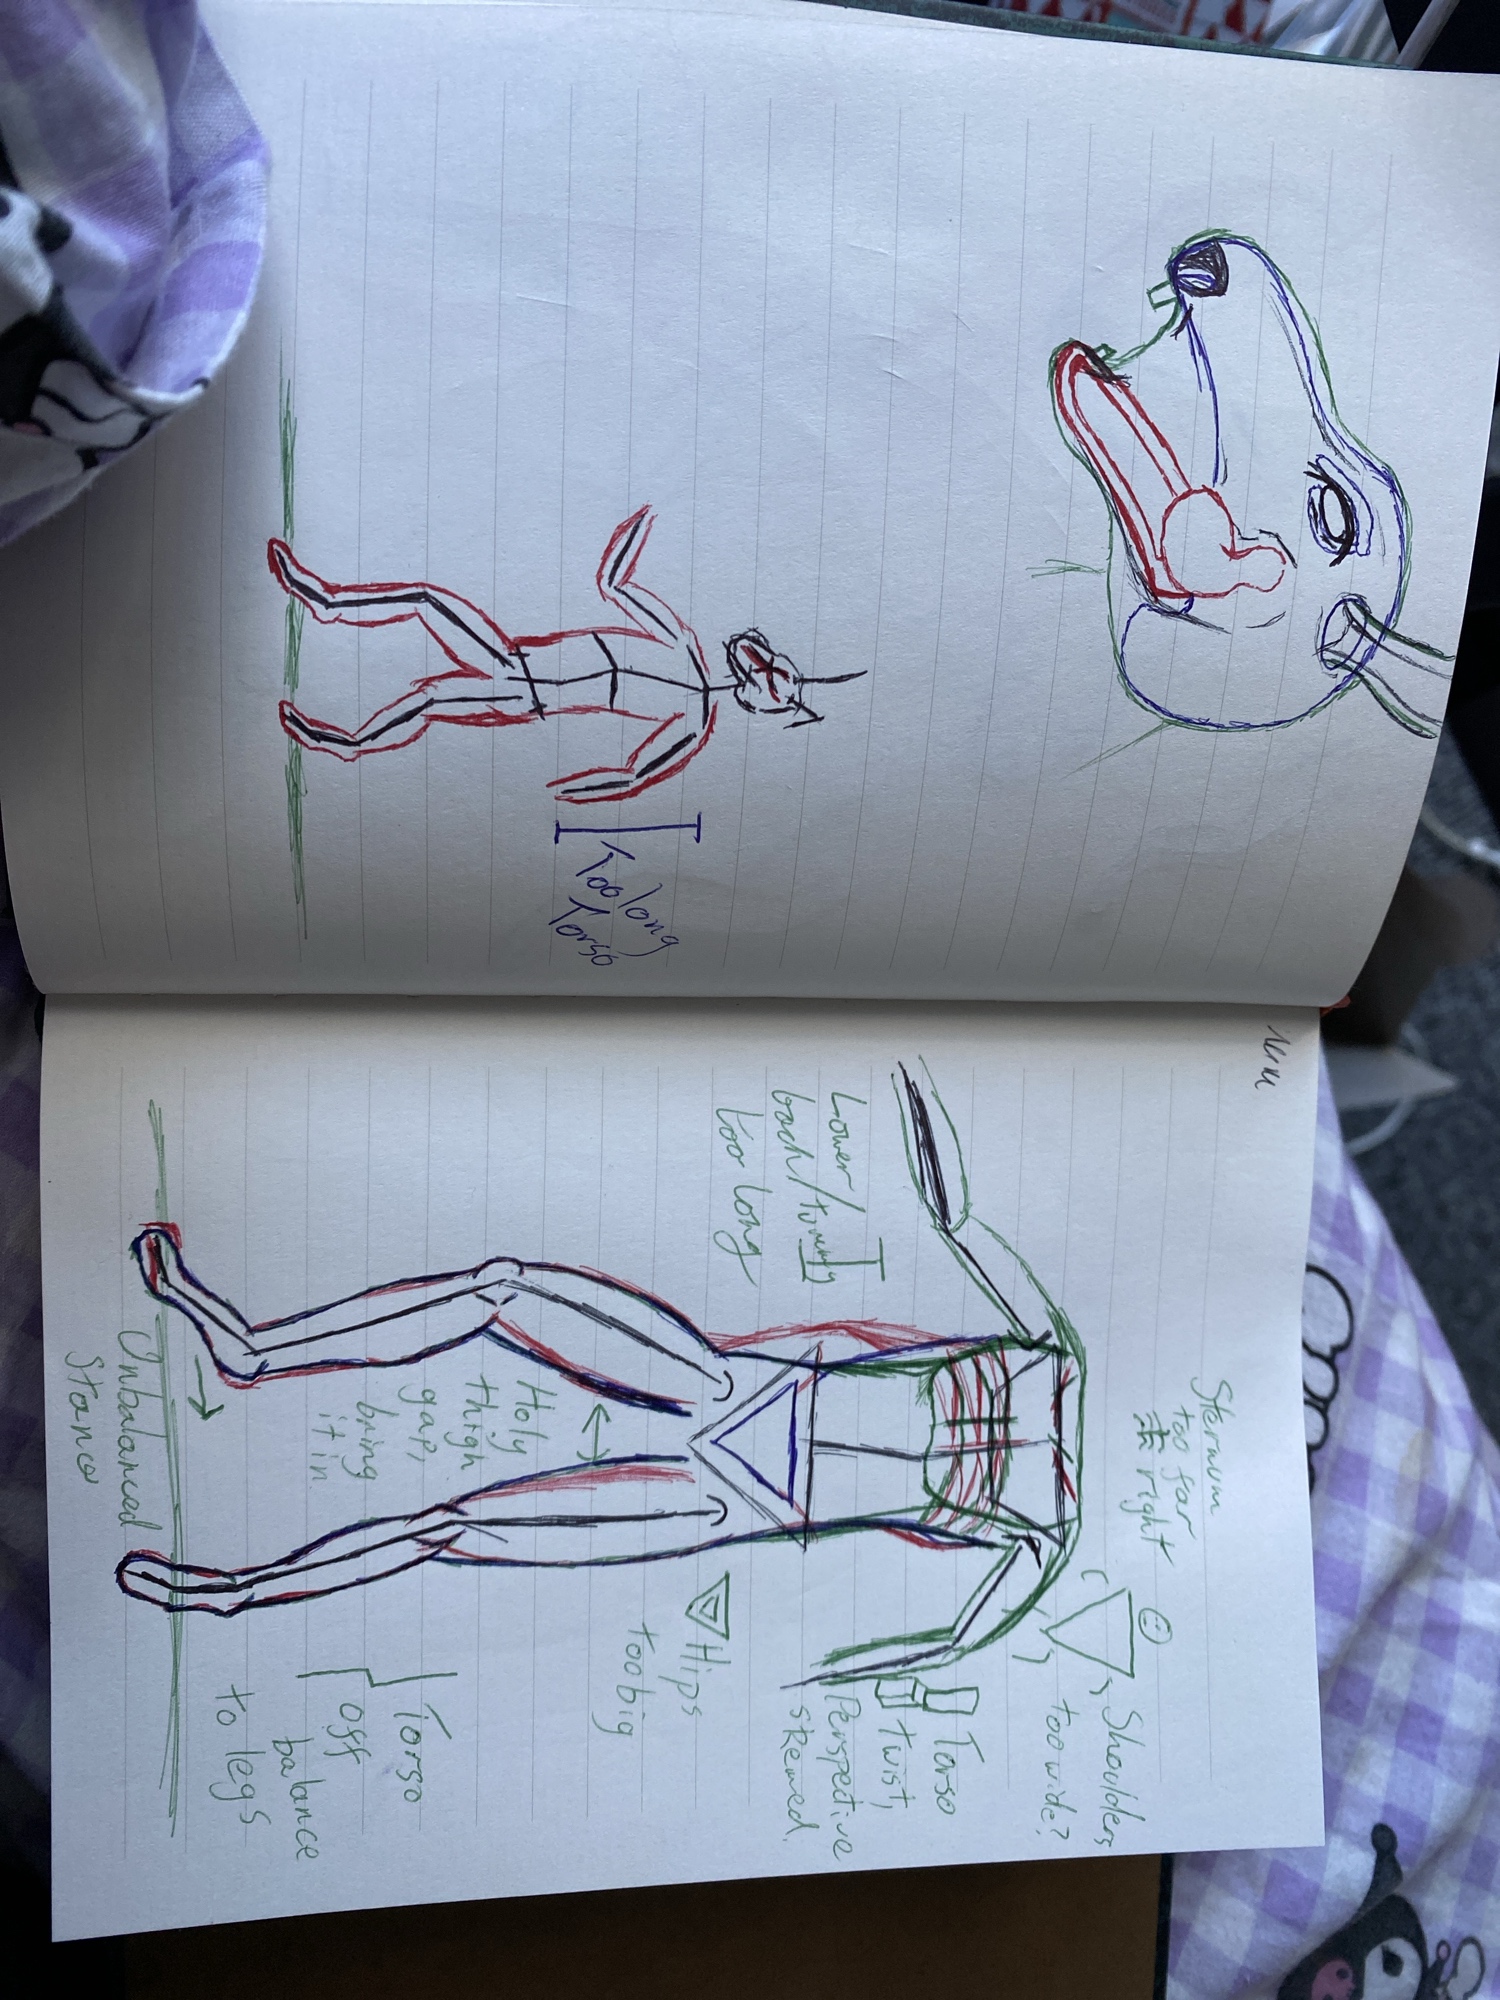 Too long
Torso
Sternum
too far
right
Shoulders
too wide?
Lower
back/tummy
too long
Torso
twist,
Perspective
skewed.
Hips
too big
Holy
thigh
gap,
bring
it in
Torso
off
balance
to legs
Unbalanced
Stance